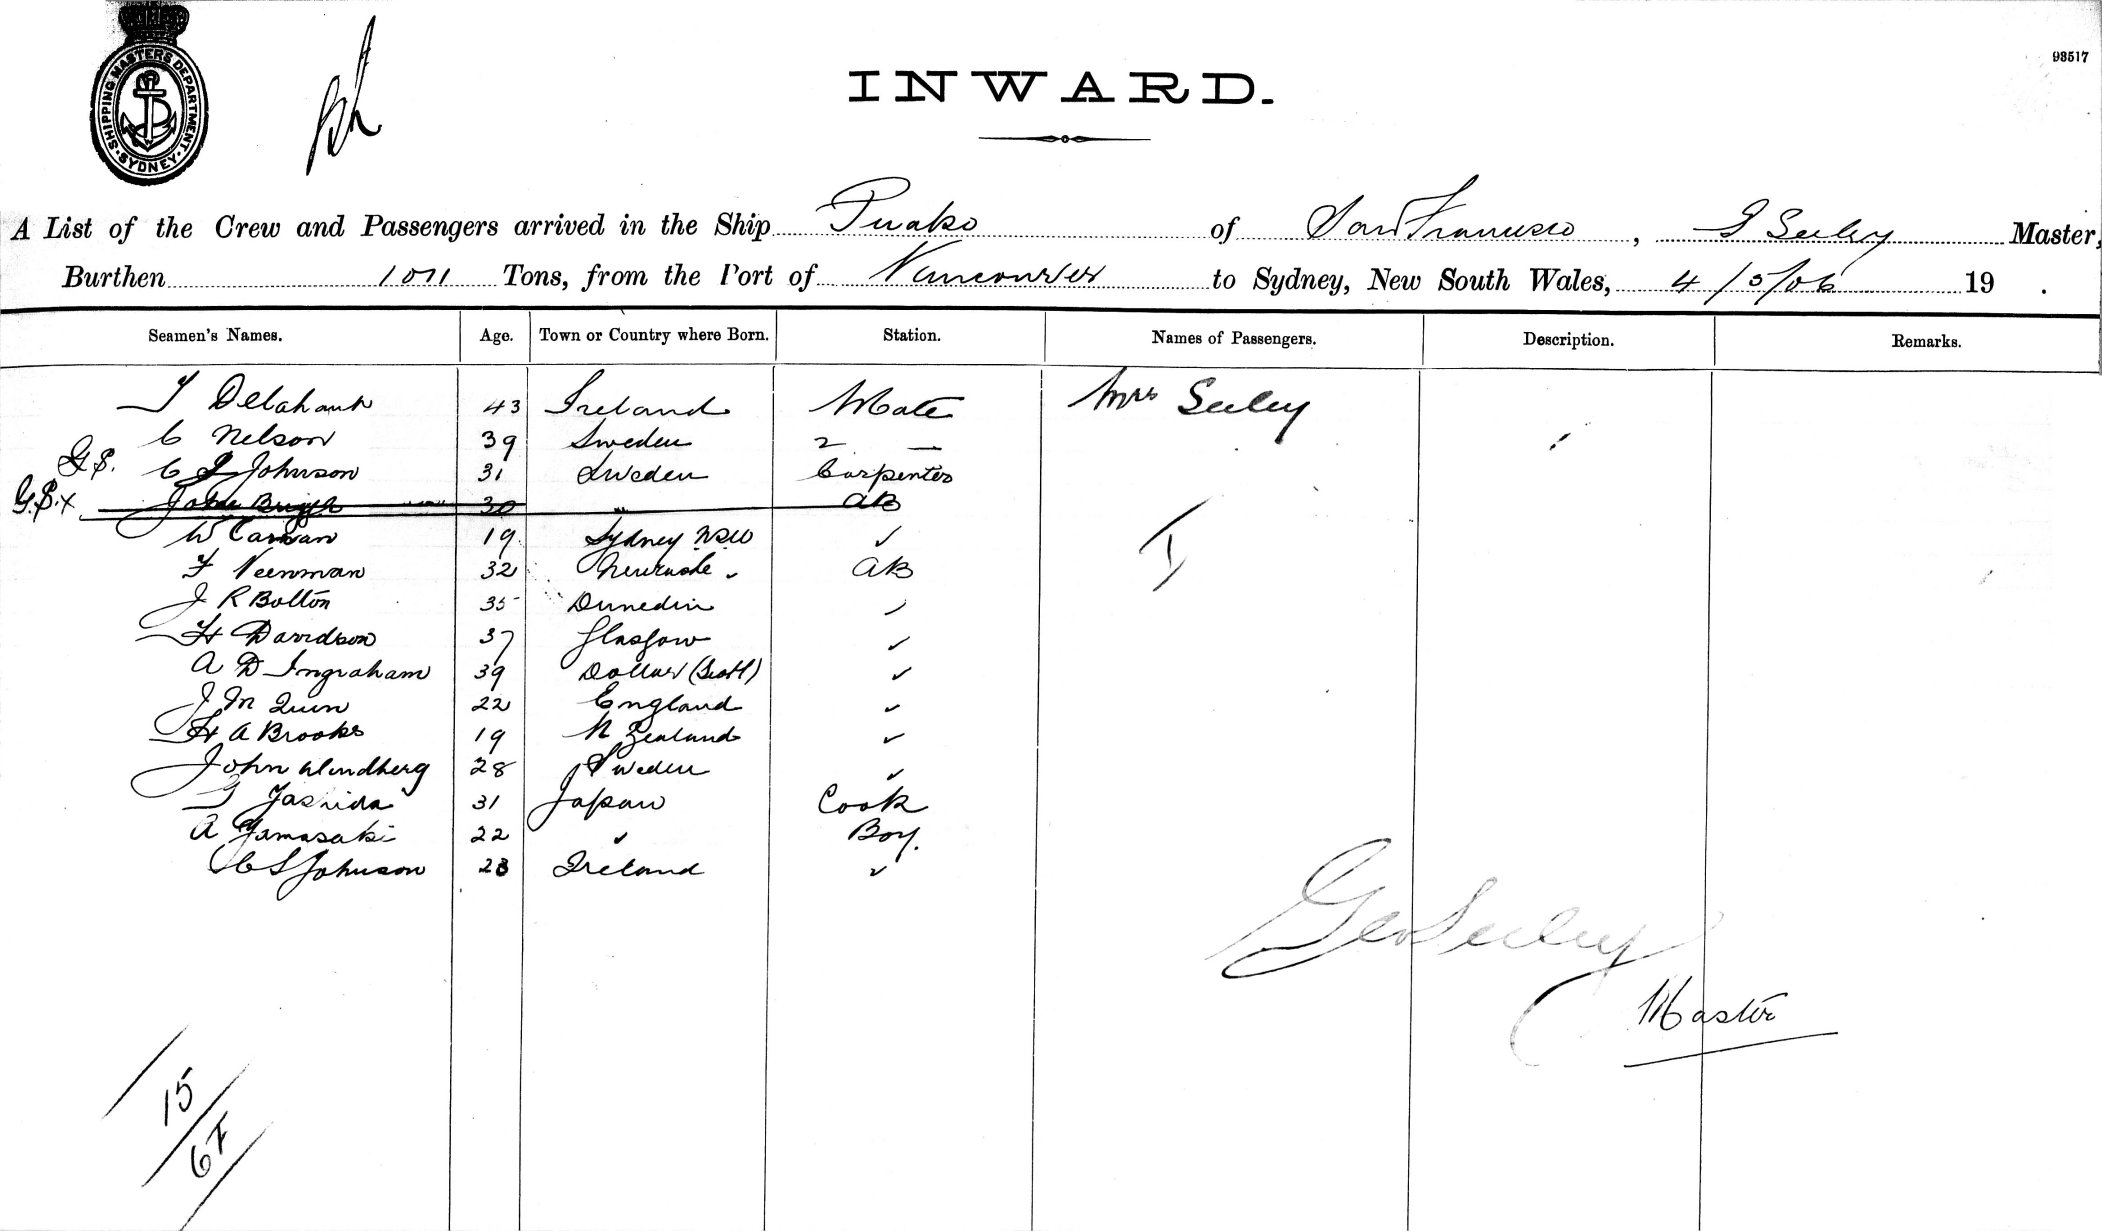 SHIPPING MASTERS DEPARTMENT. SYDNEY
93517
INWARD.
A List of the Crew and Passengers arrived in the Ship Puako of San Francisco, G Seeley Master,
Burthen 1011 Tons, from the Port of Vancouver to Sydney, New South Wales, 4/5/06 19 .
Seamen's Names. Age. Town or Country where Born. Station. Names of Passengers. Description. Remarks.
43 Ireland Mate Mrs Seeley
C Nelson 39 Sweden 2 —
G.S. C J Johnson 31 Sweden Carpenter
G.S. x John 30 " AB
W 19 Sydney NSW ✓
F Veenman 32 Newcastle " AB
J R Bolton 35 Dunedin ✓
H Davidson 37 Glasgow ✓
A D Ingraham 39 Dollar (Scotl) ✓
J M Quin 22 England ✓
H A Brooks 19 N Zealand ✓
John Windberg 28 Sweden ✓
31 Japan Cook
A Yamasaki 22 ✓ Boy.
C S Johnson 23 Ireland ✓
Geo Seeley
Master
15
67